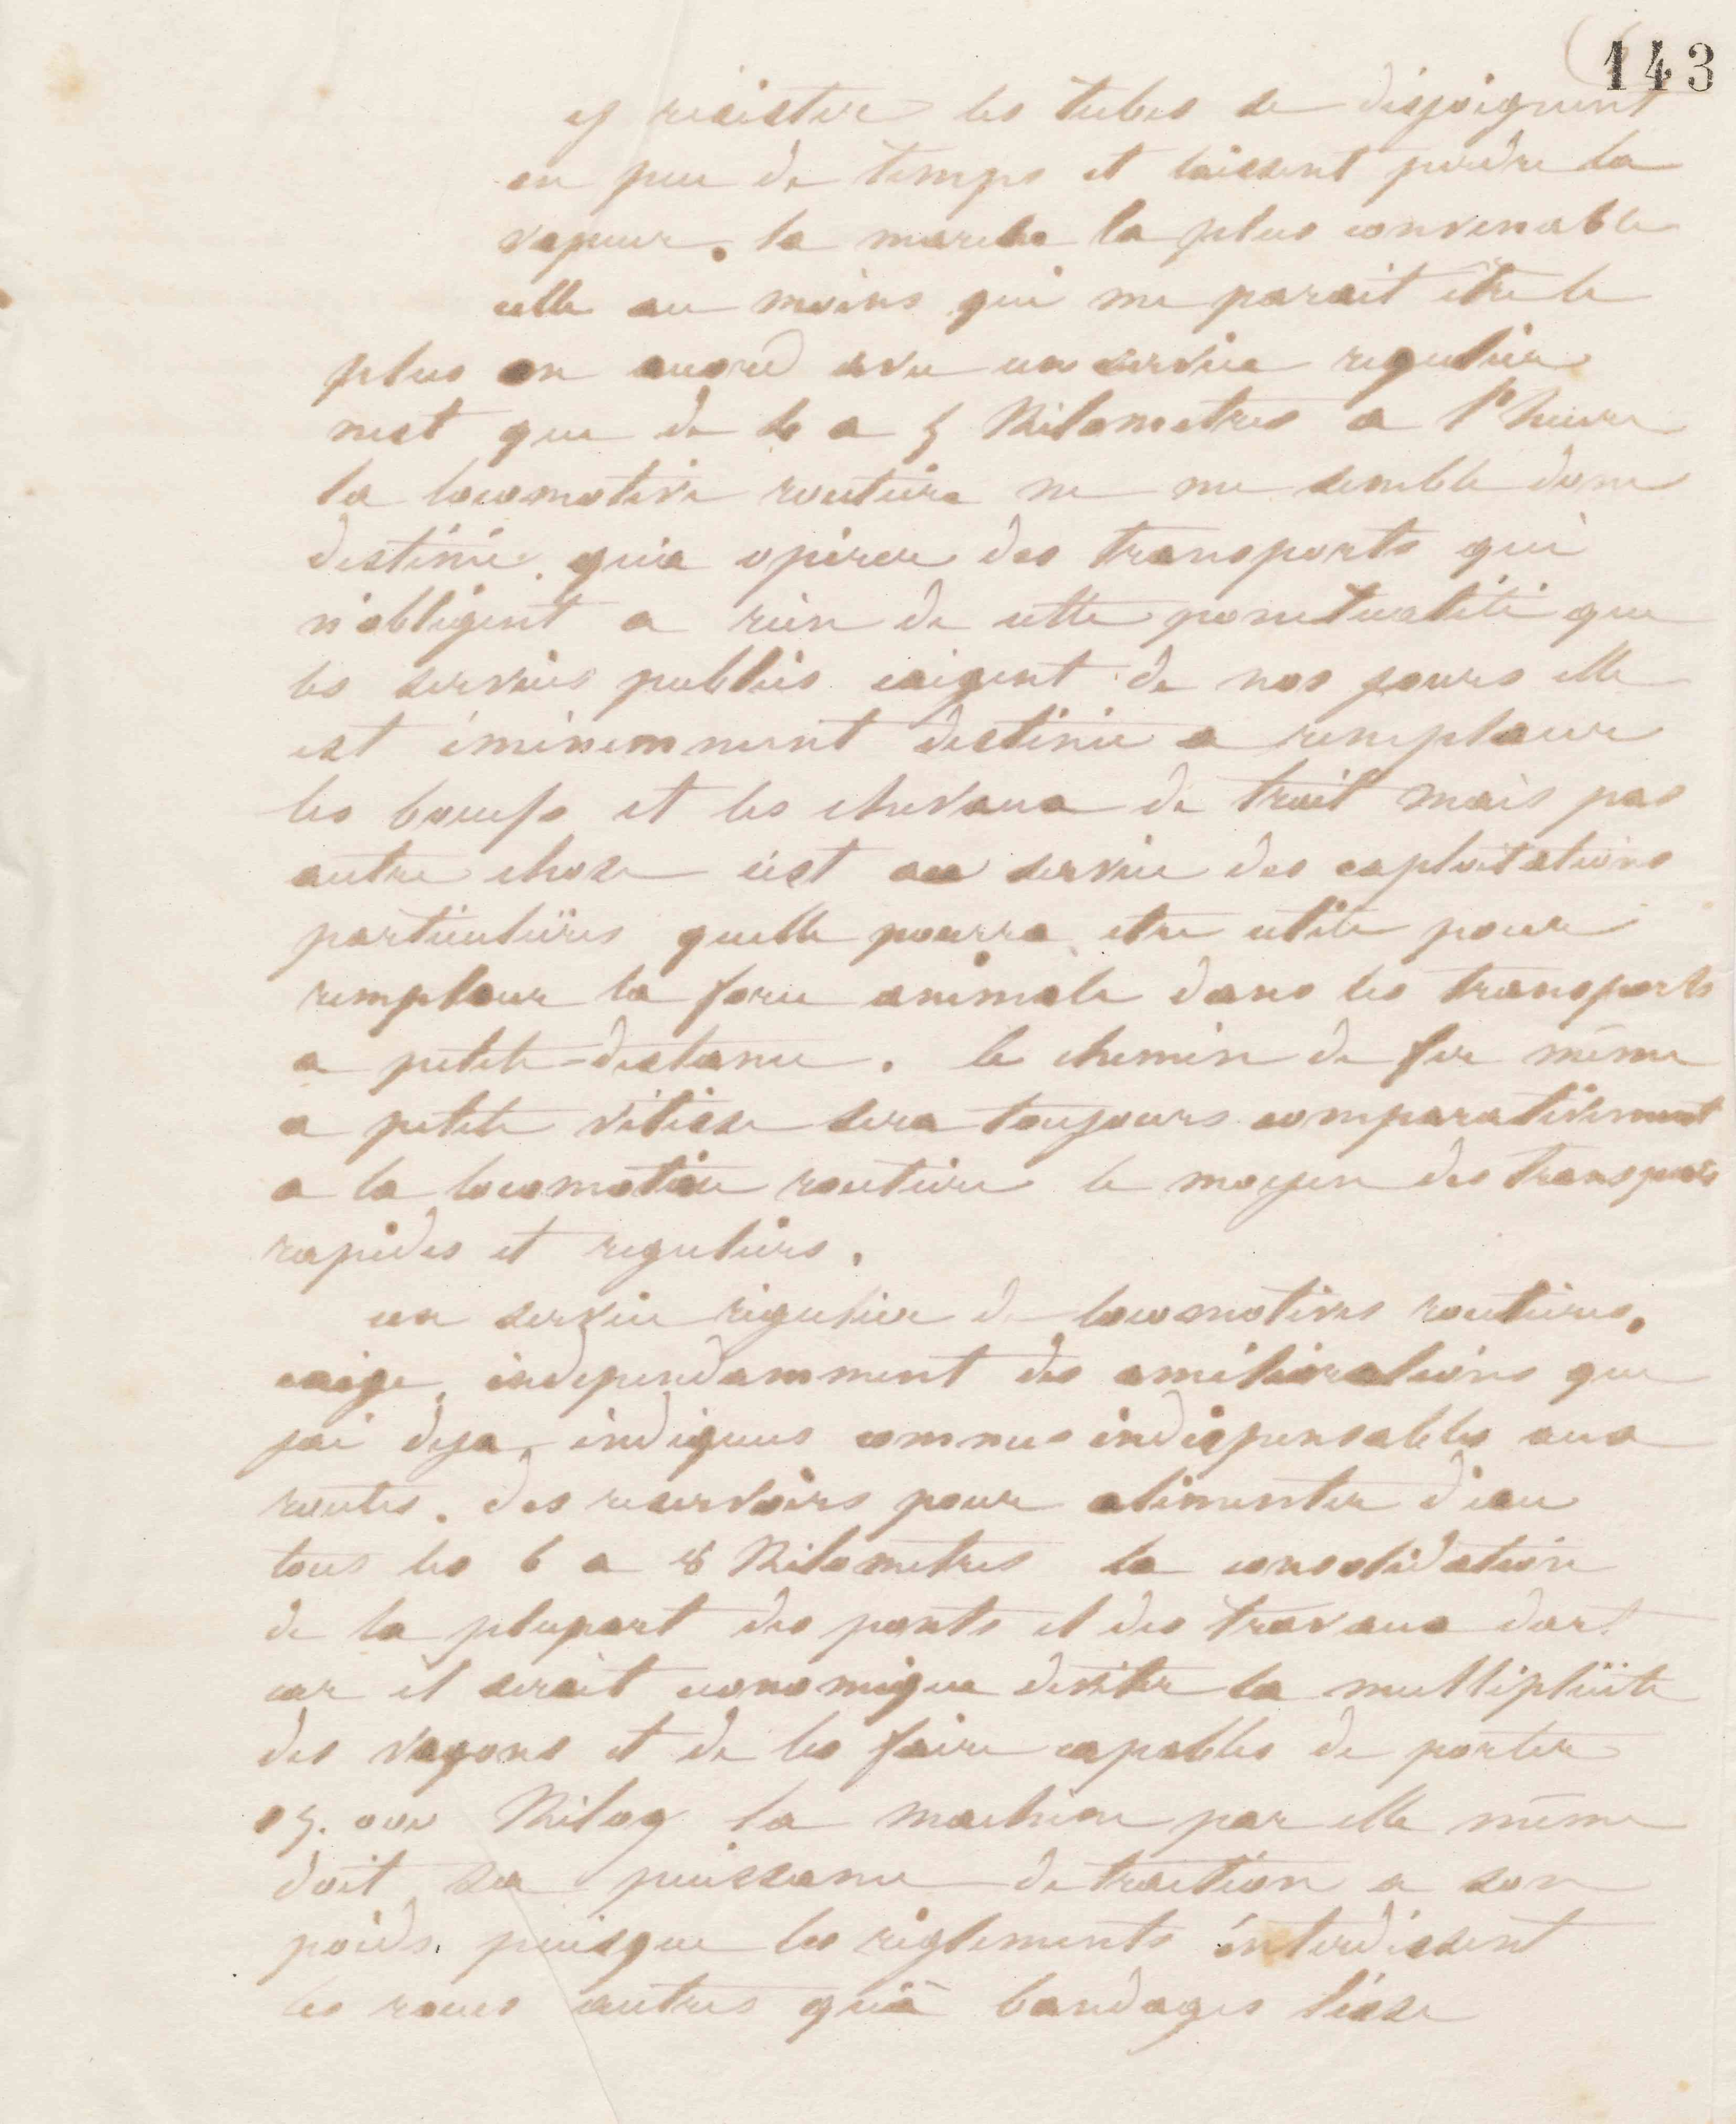 143
y resister les tubes se disjoignent
en peu de temps et laissent perdre la
vapeur. la marche la plus convenable
celle au moins qui me parait être le
plus en accord avec un service regulier
nest que de 4 a 5 Kilometres a l'heure
la locomotive routiere ne me semble donc
destinée qu'a opérer des transports qui
n'obligent a rien de cette ponctualité que
les services publics exigent de nos jours elle
est éminemment destinée a remplacer
les boeufs et les chevaux de trait mais pas
autre chose c'est au service des exploitations
particulières quelle pourra etre utile pour
remplacer la force animale dans les transports
a petite distance. le chemin de fer même
a petite vitesse sera toujours comparativement
a la locomotive routiere le moyen des transports
rapides et reguliers.
un service régulier de locomotives routieres.
exige independamment des améliorations que
jai deja indiquees comme indispensables aux
routes. des reservoirs pour alimenter d'eau
tous les 6 a 8 Kilometres la consolidation
de la plupart des ponts et des travaux dart
car il serait economique deviter la multiplicite
des vagons et de les faire capables de porter
15.000 Kilog la machine par elle même
doit sa puissance de traction a son
poids. puisque les réglements interdissent
les roues autres qu'à bandages lisse